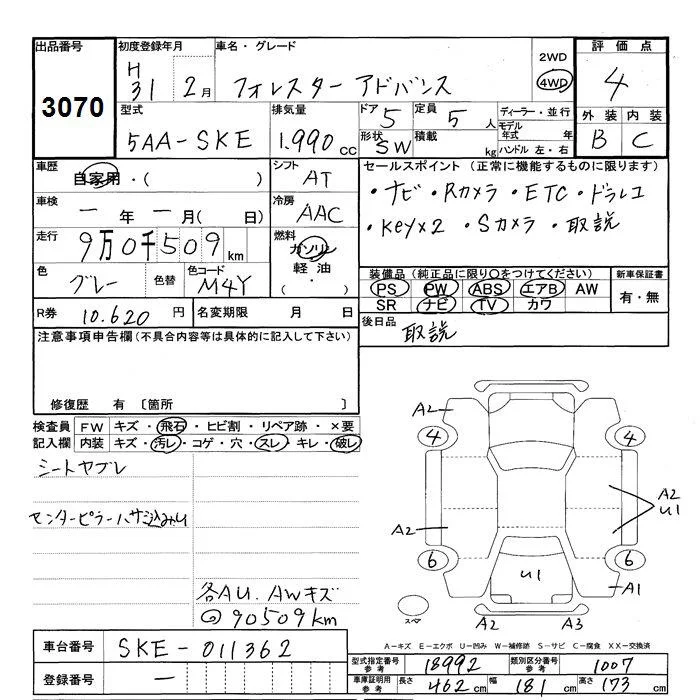 出品番号
3070
初度登録年月
H
31 2月
車名・グレード
フォレスター アドバンス
2WD
4WD
評価点
4
外装 内装
B C
型式
5AA-SKE
排気量
1.990 cc
ドア 5
形状 SW
定員 5 人
積載 kg
ディーラー・並行
モデル年式 年
ハンドル 左・右
車歴
自家用・( )
シフト
AT
車検
一 年 一 月( 日)
冷房
AAC
走行
9万0千509km
燃料
ガソリン
軽油
( ・ )
色
グレー
色替
色コード
M4Y
セールスポイント (正常に機能するものに限ります)
・ナビ・Rカメラ・ETC・ドラレコ
・Keyx2・Sカメラ・取説
装備品(純正品に限り○をつけてください)
PS PW ABS エアB AW
SR ナビ TV カワ
新車保証書
有・無
R券 10.620 円
名変期限 月 日
後日品
取説
注意事項申告欄(不具合内容等は具体的に記入して下さい)
修復歴 有〔箇所 〕
検査員記入欄
FW キズ・飛石・ヒビ割・リペア跡・×要
内装 キズ・汚レ・コゲ・穴・スレ・キレ・破レ
シートヤブレ
センターピラーハサミ込みU
各AU. AWキズ
90509km
A2
4 4
A2
U1
A2
6 6
U1
A1
スペア
A2 A3
A-キズ E-エクボ U-凹み W-補修跡 S-サビ C-腐食 XX-交換済
車台番号 SKE-011362
登録番号 一
型式指定番号 参考 18992
類別区分番号 参考 1007
車庫証明用 参考 長さ 462cm 幅 181cm 高さ 173cm